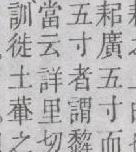 耜廣五寸而
五寸者謂
當云詳里切
訓徙土輂之